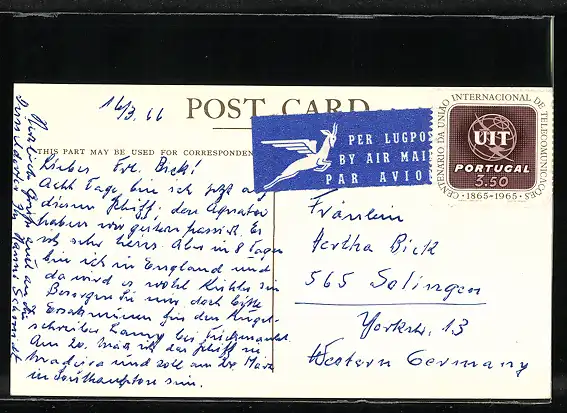 16/3. 66
POST CARD
THIS PART MAY BE USED FOR CORRESPONDEN
PER LUGPO
BY AIR MAI
PAR AVIO
CENTENÁRIO DA UNIÃO INTERNACIONAL DE TELECOMUNICAÇÕES
UIT
PORTUGAL
3.50
·1865-1965·
Liebes Frl. Bick!
Acht Tage bin ich jetzt auf
diesem Schiff; den Äquator
haben wir gestern passiert. Es
ist sehr heiss. Aber in 8 Tagen
bin ich in England und
da wird es wohl kühler sein
Besorgen Sie mir doch bitte
Ersatzminen für den Kugel-
schreiber
Am 20. März ist das Schiff in
Madeira und soll am 24. März
in Southampton sein.
Herzliche Grüsse auch an die
Hanni Schmidt
Fräulein
Hertha Bick
565 Solingen
Yorckstr. 13
Western Germany